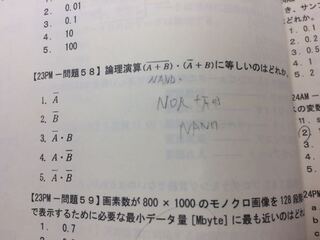 2. 0.01
3. 0.1
4. 10
5. 100
【23PM－問題58】論理演算(A̅＋B̅)・(A̅＋B)に等しいのはどれか。
NAND.
1. A̅
2. B̅
3. A̅・B
4. A・B̅
5. A̅・B̅
NOR
NAND
【23PM－問題59】画素数が 800 × 1000 のモノクロ画像を 128 段階
で表示するために必要な最小データ量 [Mbyte] に最も近いのはどれ
1. 0.7
き、サン
どれか。
1.
2.
3.
4.
5.
24AM－
の変数
1.
3.
4.
5.
24PM
a
b